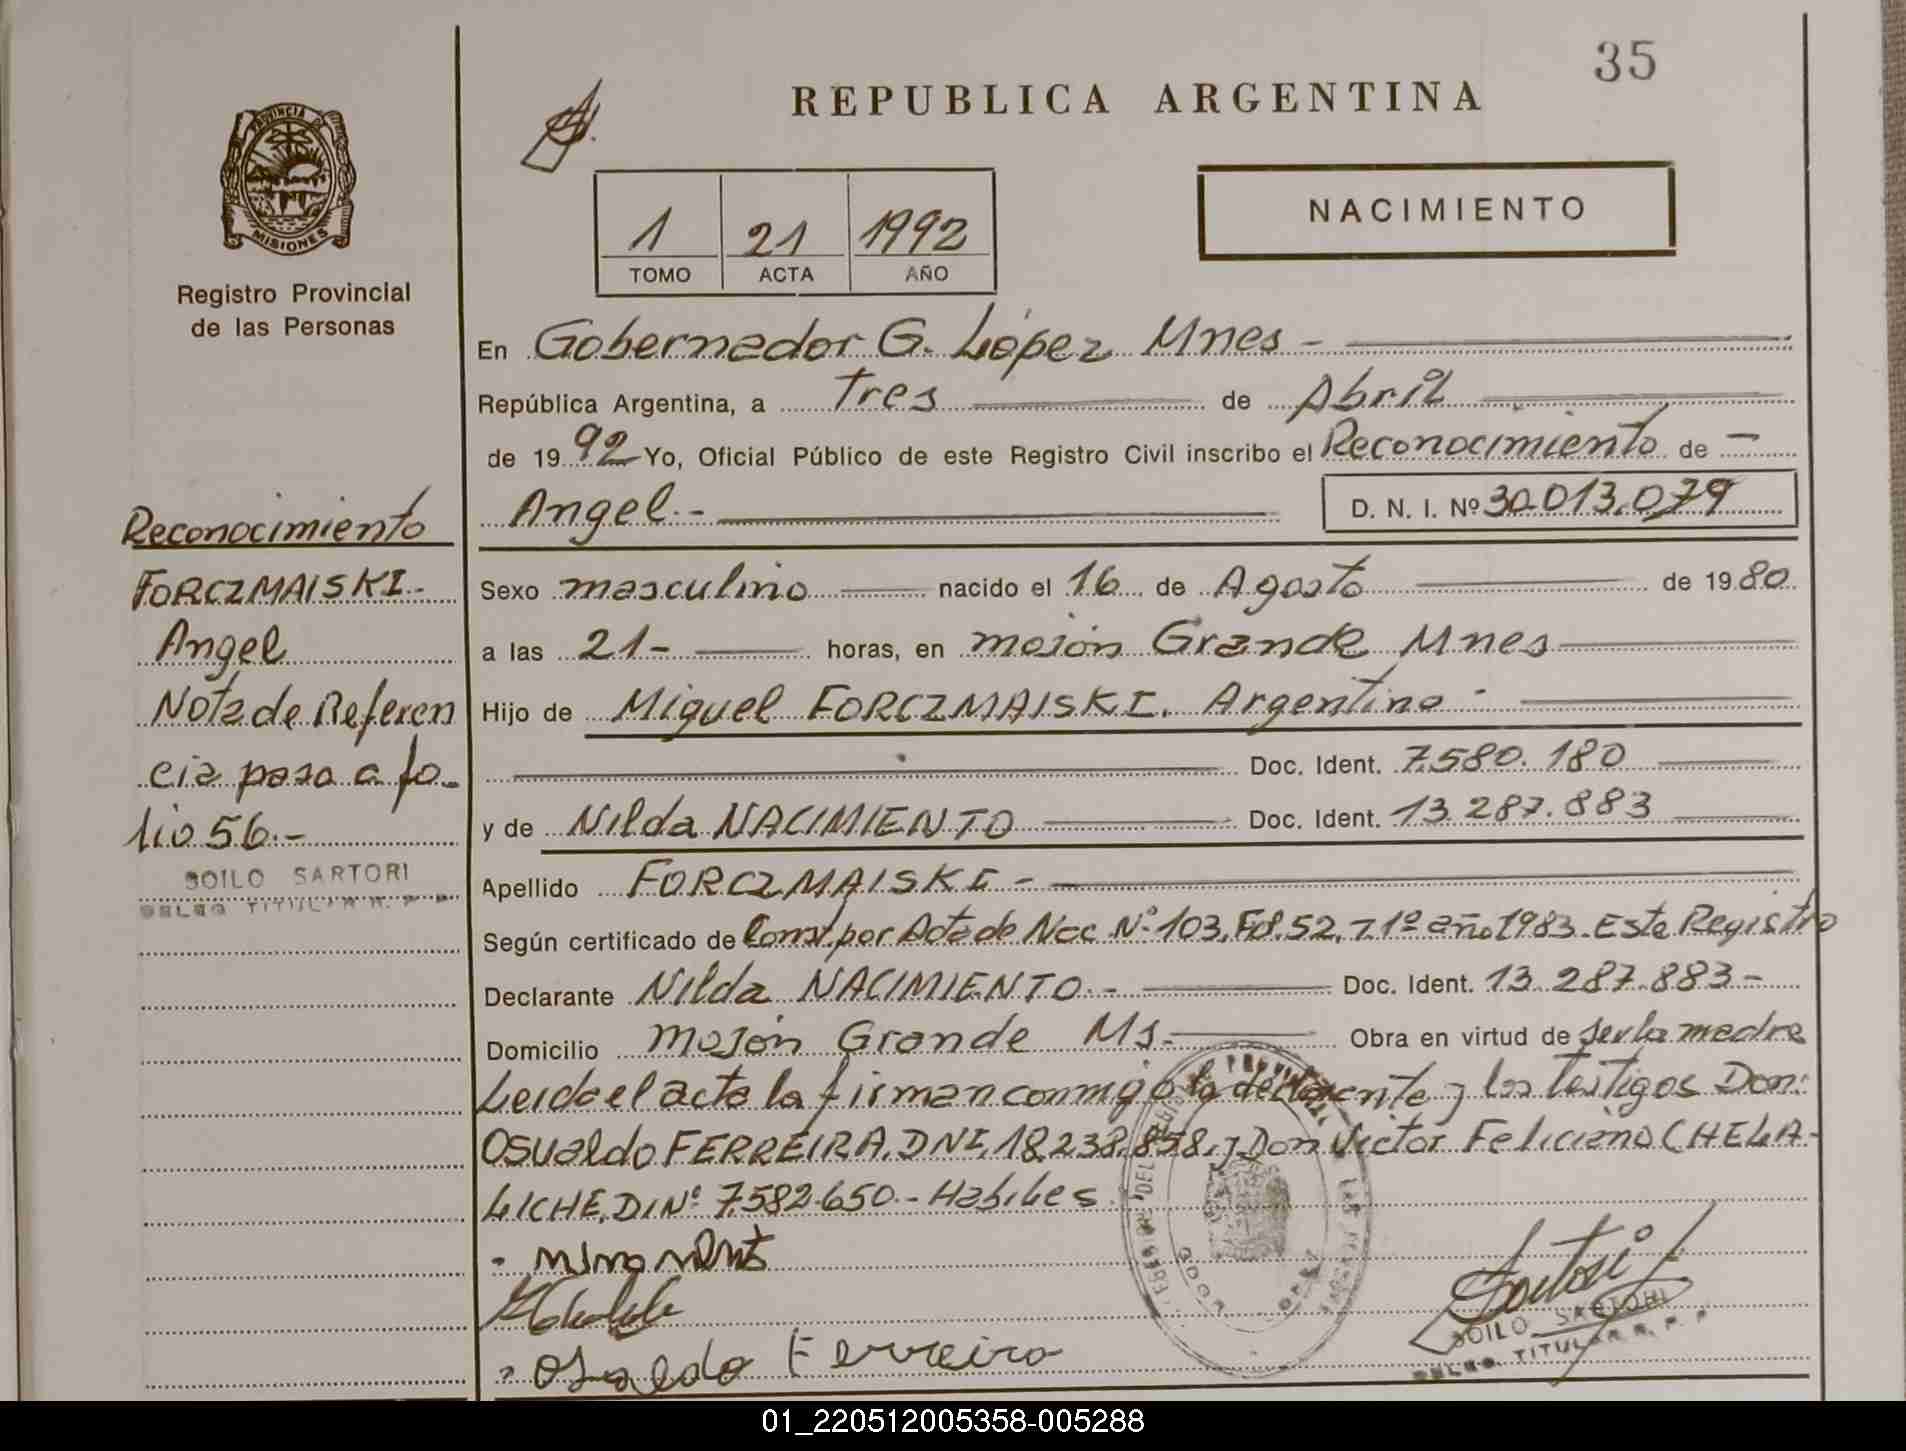 35
REPUBLICA ARGENTINA
PROVINCIA DE
MISIONES
Registro Provincial
de las Personas
1 21 1992
TOMO ACTA AÑO
NACIMIENTO
En Gobernador G. López Mnes -
República Argentina, a tres de Abril
de 1992 Yo, Oficial Público de este Registro Civil inscribo el Reconocimiento de -
Angel.- D. N. I. Nº 30.013.079
Reconocimiento
FORCZMAISKI.-
Angel
Nota de Referen
cia pasa a fo-
lio 56.-
SOILO SARTORI
DELEG TITULAR R. P. P.
Sexo masculino nacido el 16 de Agosto de 1980
a las 21- horas, en mojón Grande Mnes
Hijo de Miguel FORCZMAISKI. Argentino -
Doc. Ident. 7.580.180
y de Nilda NACIMIENTO Doc. Ident. 13.287.883
Apellido FORCZMAISKI -
Según certificado de Const. por Acta de Nac Nº 103, Fº 52, T 1º año 1983. Este Registro
Declarante Nilda NACIMIENTO.- Doc. Ident. 13.287.883-
Domicilio Mojón Grande Ms.- Obra en virtud de ser la madre
Leida el acta la firman conmigo la declarente y los testigos Don:
Osualdo FERREIRA, DNI, 18.238.858, y Don Victor Feliciano CHELA-
LICHE, DI Nº 7.582.650.- Habiles.
Osualdo Ferreira
Sartori
SOILO SARTORI
DELEG. TITULAR R. P. P.
01_220512005358-005288